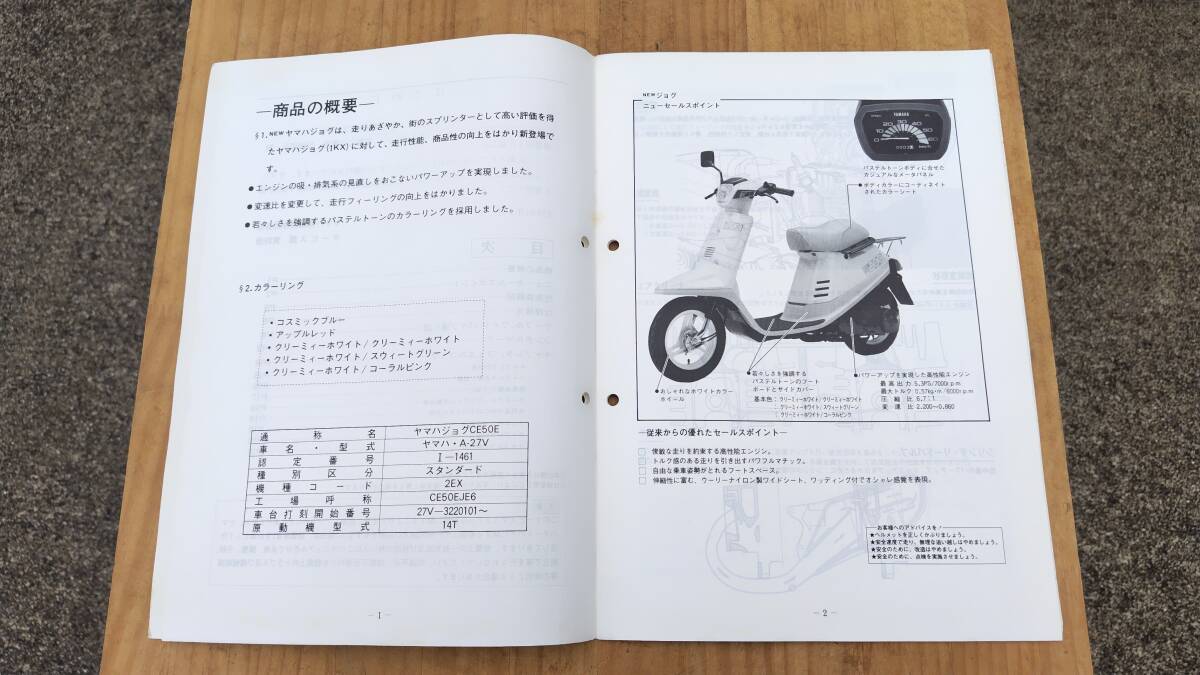 —商品の概要—
§1. NEWヤマハジョグは、走りあざやか、街のスプリンターとして高い評価を得
たヤマハジョグ(1KX)に対して、走行性能、商品性の向上をはかり新登場で
す。
●エンジンの吸・排気系の見直しをおこないパワーアップを実現しました。
●変速比を変更して、走行フィーリングの向上をはかりました。
●若々しさを強調するパステルトーンのカラーリングを採用しました。
§2. カラーリング
・コスミックブルー
・アップルレッド
・クリーミィーホワイト/クリーミィーホワイト
・クリーミィーホワイト/スウィートグリーン
・クリーミィーホワイト/コーラルピンク
通称名 ヤマハジョグCE50E
車名・型式 ヤマハ・A-27V
認定番号 I-1461
種別区分 スタンダード
機種コード 2EX
工場呼称 CE50EJE6
車台打刻開始番号 27V—3220101〜
原動機型式 14T
— 1 —
NEWジョグ
ニューセールスポイント
YAMAHA
0 10 20 30 40 50 60
km/h
パステルトーンボディに合せた
カジュアルなメータパネル
●ボディカラーにコーディネイト
されたカラーシート
●おしゃれなホワイトカラー
ホイール
●若々しさを強調する
パステルトーンのフート
ボードとサイドカバー
基本色:クリーミィーホワイト/クリーミィーホワイト
:クリーミィーホワイト/スウィートグリーン
:クリーミィーホワイト/コーラルピンク
●パワーアップを実現した高性能エンジン
最高出力 5.3PS/7000rpm
最大トルク 0.57kg・m/6000rpm
圧縮比 6.7:1
変速比 2.200〜0.860
—従来からの優れたセールスポイント—
□ 俊敏な走りを約束する高性能エンジン。
□ トルク感のある走りを引き出すパワフルマチック。
□ 自由な乗車姿勢がとれるフートスペース。
□ 伸縮性に富む、ウーリーナイロン製ワイドシート、ワッディング付でオシャレ感覚を表現。
お客様へのアドバイスを!
★ヘルメットを正しくかぶりましょう。
★安全速度で走り、無理な追い越しはやめましょう。
★安全のために、改造はやめましょう。
★安全のために、点検を実施させましょう。
— 2 —